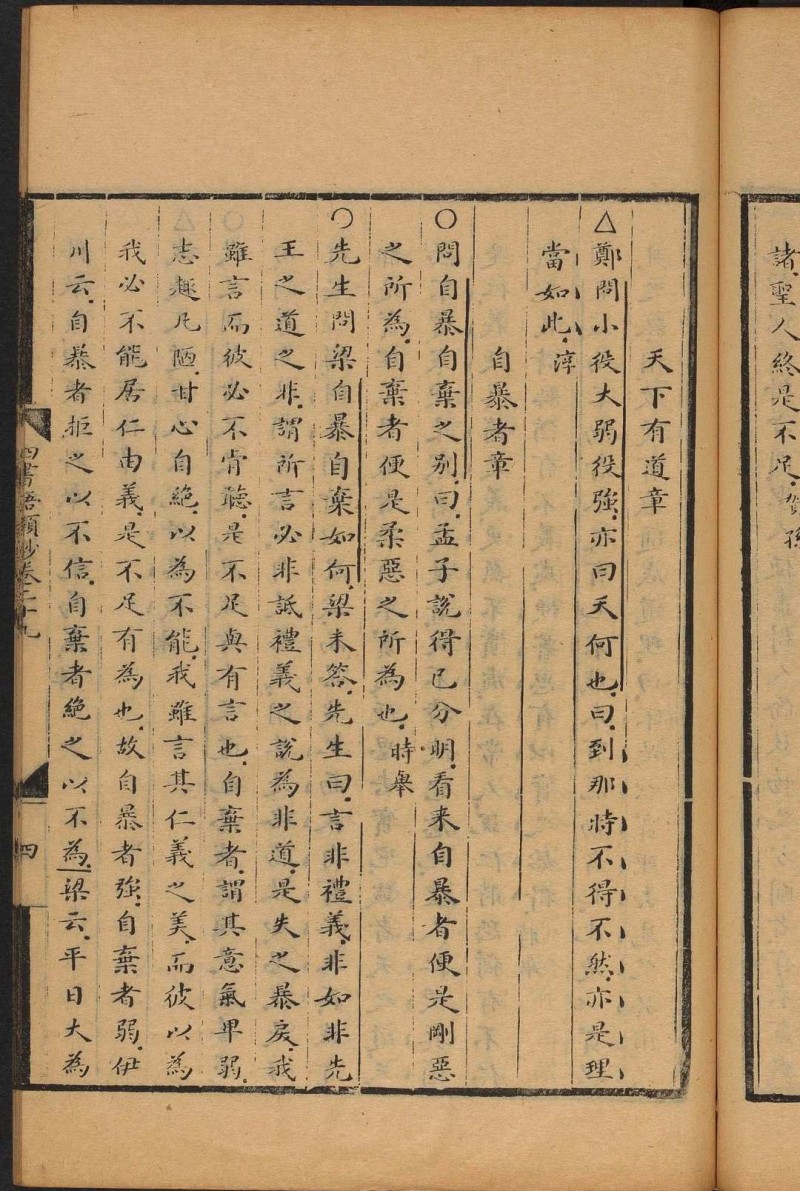 諸聖人終是不足賀孫
天下有道章
△鄭問小役大弱役強亦曰天何也曰到那時不得不然亦是理
當如此淳
自暴者章
○問自暴自棄之別曰孟子說得已分明看来自暴者便是剛惡
之所為自棄者便是柔惡之所為也時舉
○先生問梁自暴自棄如何梁未答先生曰言非禮義非如非先
王之道之非謂所言必非詆禮義之說為非道是失之暴戾我
雖言而彼必不肯聽是不足與有言也自棄者謂其意氣卑弱
志趣凡陋甘心自絶以為不能我雖言其仁義之美而彼以為
我必不能居仁由義是不足有為也故自暴者強自棄者弱伊
川云自暴者拒之以不信自棄者絶之以不為梁云平日大為
四書語類鈔卷二十九
四